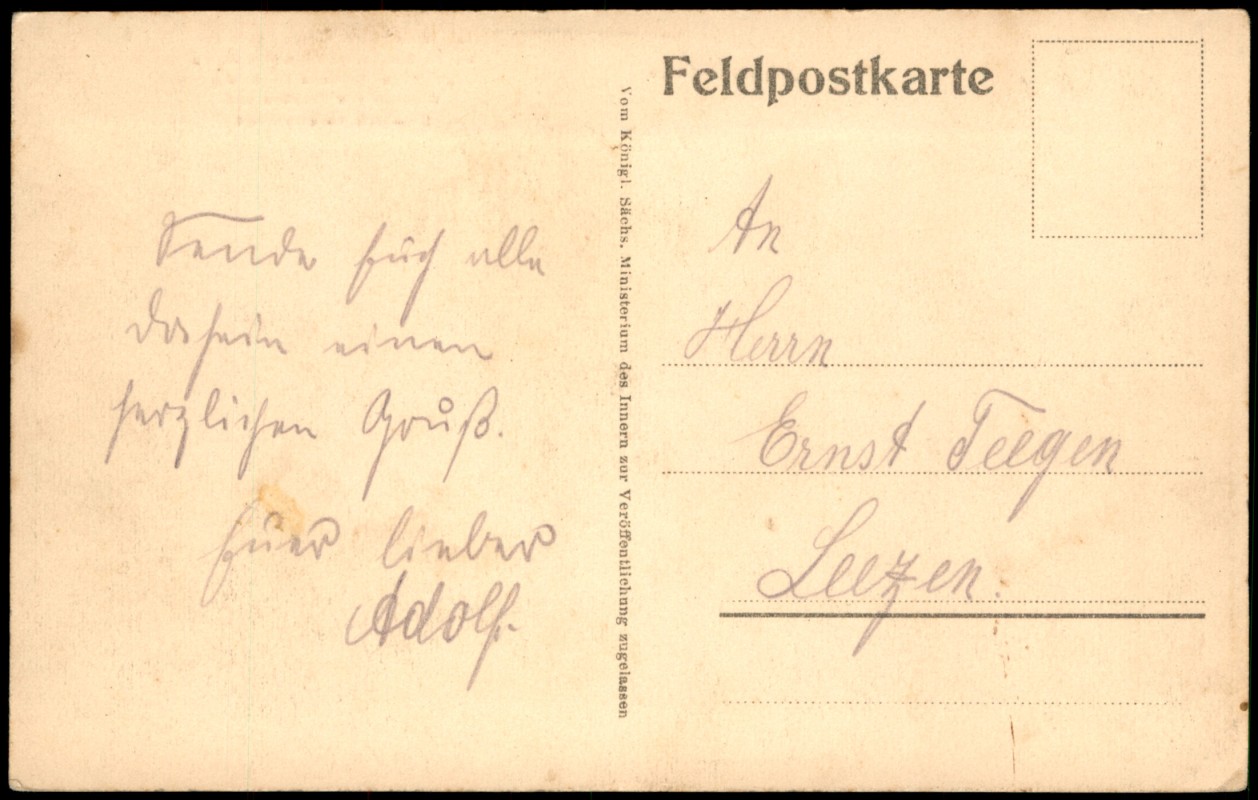 Sende Euch alle
daheim einen
herzlichen Gruß.
Euer lieber
Adolf.
Vom Königl. Sächs. Ministerium des Innern zur Veröffentlichung zugelassen
Feldpostkarte
An
Herrn
Ernst Teegen
Leezen.